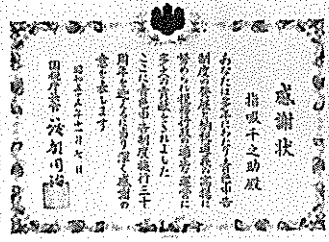 感謝状
指吸千之助殿
あなたは多年にわたり青色申告
制度の発展と納税道義の高揚に
努められ行政の運営に
多大の貢献をされました
ここに青色申告制度施行三十
周年を迎えるに当り深く感謝の
意を表します
昭和五十五年十一月七日
国税庁長官 渡部周治